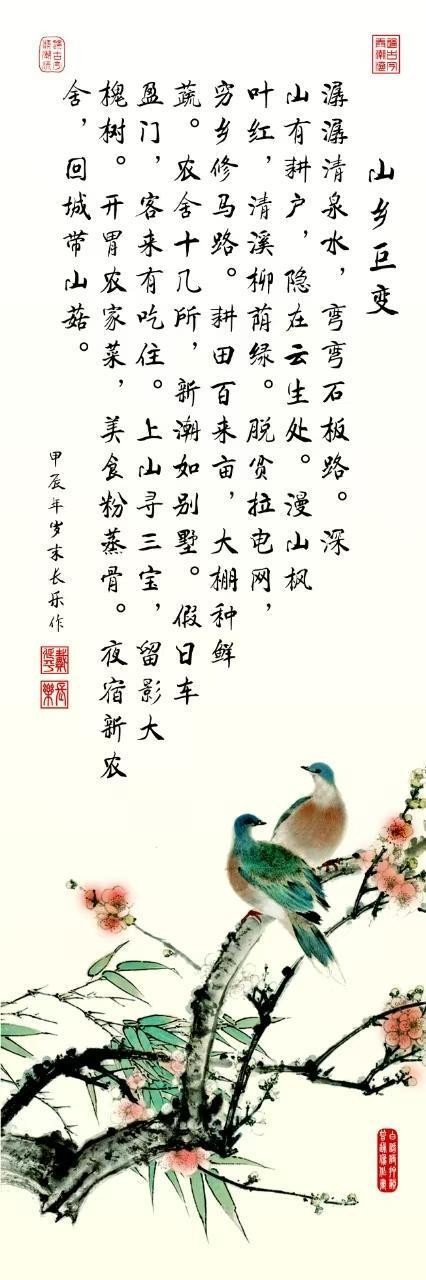 山乡巨变
潺潺清泉水，弯弯石板路。深
山有耕户，隐在云生处。漫山枫
叶红，清溪柳荫绿。脱贫拉电网，
穷乡修马路。耕田百来亩，大棚种鲜
蔬。农舍十几所，新潮如别墅。假日车
盈门，客来有吃住。上山寻三宝，留影大
槐树。开胃农家菜，美食粉蒸骨。夜宿新农
舍，回城带山菇。
甲辰年岁末长乐作
長樂